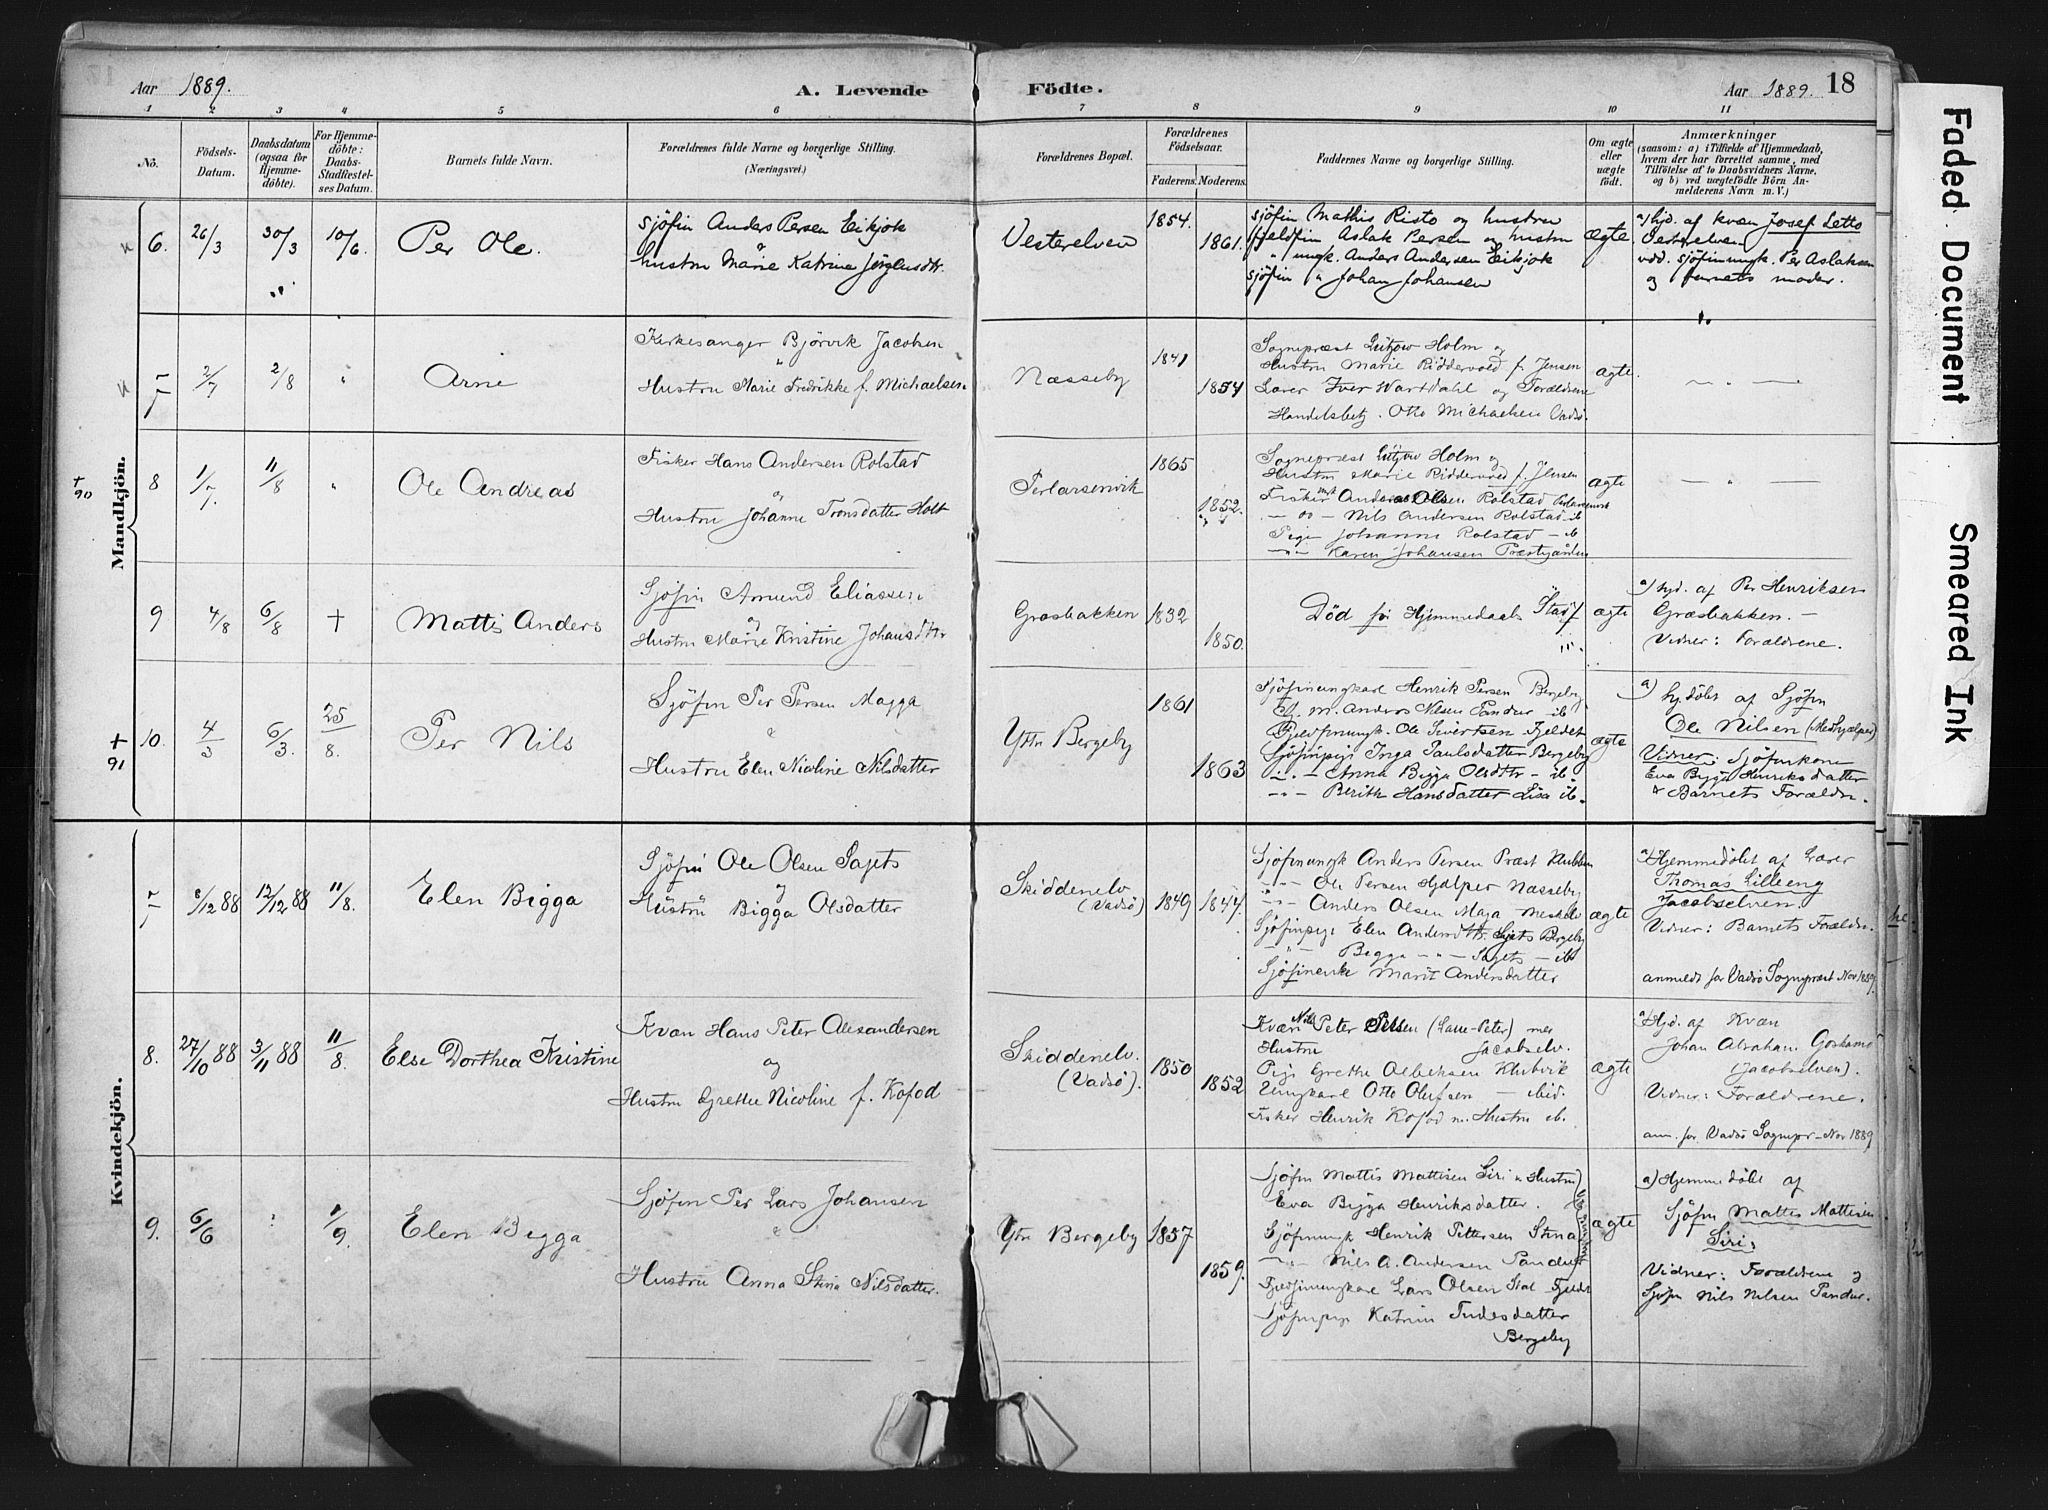 Aar 1889.
A. Levende
Födte.
Aar 1889.
18
1 2 3 4 5 6 7 8 9 10 11
No.
Födsels-
Datum.
Daabsdatum
(ogsaa för
Hjemme-
döbte).
For Hjemme-
döbte:
Daabs-
Stadfæstel-
ses Datum.
Barnets fulde Navn.
Forældrenes fulde Navne og borgerlige Stilling.
(Næringsvei.)
Forældrenes Bopæl.
Forældrenes
Födselsaar.
Faderens. Moderens.
Faddernes Navne og borgerlige Stilling.
Om ægte
eller
uægte
födt.
Anmærkninger
(saasom: a) i Tilfælde af Hjemmedaab,
hvem der har forrettet samme, med
Tilföielse af to Daabsvidners Navne,
og b) ved uægtefödte Börn An-
melderens Navn m. V.)
Mandkjön.
6. 26/3 30/3 10/6. Per Ole.
sjöfin Anders Persen Eikjok
&
hustru Marie Katrine Jörgensdtr.
Vesterelven
1854.
1861.
sjöfin Mathis Risto og hustru
fjeldfin Aslak Persen og hustru
" ungk. Anders Andersen Eikjok
sjöfin " Johan Johansen
ægte
a) hjd. af kvæn Josef Letto
Vesterelven
vdd. sjöfinungk. Per Aslaksen
og barnets moder.
7 2/7 2/8 " Arne
Kirkesanger Björvik Jacobsen
"
Hustru Marie Fredrikke f. Michaelsen
Næsseby
1841
1854
Sognepræst Lützow Holm og
Hustru Marie Riddervold f. Jensen
Lærer Iver Wartdahl og Forældrene
Handelsbetj. Otto Michaelsen Vadsö.
ægte.
— " —
+ 90
8 1/7. 11/8 " Ole Andreas
Fisker Hans Andersen Rolstad
og
Hustru Johanne Tronsdatter Holt
Perlarsenvik
1865
1852.
Sognepræst Lützow Holm og
Hustru Marie Riddervold f. Jensen
Fisker ungk Andreas Olsen Rolstad Perlarsenvik
— " — Nils Andersen Rolstad ib
Pige Johanne Rolstad — ib
— " — Karen Johansen Præstgården
ægte
— " —
9 4/8 6/8 + Mattis Anders
Sjöfin Amund Eliassen
og
Hustru Marie Kristine Johansdtr
Græsbakken
1832
1850.
Död för Hjemmedaabs Stadf
ægte
a) hjd. af Per Henriksen
Græsbakken. —
Vidner: Forældrene.
+ 91
10. 4/3 6/3. 25/8. Per Nils
Sjöfin Per Persen Magga
&
Hustru Elen Nicoline Nilsdatter
Yttr Bergeby
1861
1863
Sjöfinungkarl Henrik Persen Bergeby
G. m. Anders Nilsen Pandur ib
Fjeldfinungk. Ole Sivertsen Fjeldet
Sjöfinpige Inga Paulsdatter Bergeby
— " — Anna Bigga Olsdtr — ib
— " — Berith Hansdatter Lisa ib.
ægte
a) hjdöbt af Sjöfin
Ole Nilsen (Medhjælper)
Vidner: Sjöfinkone
Eva Bigga Henriksdatter
& Barnets Forældre.
Kvindekjön.
7 8/12 88 12/12 88 11/8. Elen Bigga
Sjöfin Ole Olsen Sajets
og
Hustru Bigga Olsdatter
Skiddenelv
(Vadsö)
1849 1847.
Sjöfinungk Anders Persen Præst Klubben
— " — Ole Persen Hjælper Næsseby
— " — Anders Olsen Maja Meskelv
Sjöfinpige Elen Andersdttr Sajets Bergeby
— " — Bigga — " — Sajets — ib
Sjöfinenke Marit Andersdatter
ægte
a) Hjemmedöbt af Lærer
Thomas Lilleeng
Jacobselven.
Vidner: Barnets Forældre.
anmeldt for Vadsö Sognepræst Nov 1889.
8. 27/10 88 3/11 88 11/8. Else Dorthea Kristine
Kvæn Hans Peter Alexandersen
og
Hustru Grethe Nicoline f. Kofod
Skiddenelv.
(Vadsö).
1850
1852
Kvæn Nils Peter Pilsen (Lasse-Peter) med
Hustru Jacobselv.
Pige Grethe Albertsen Klubvik
Ungkarl Otto Olufsen — ibid.
Fisker Henrik Kofod m. Hustru ib.
ægte
a) Hjd. af Kvæn
Johan Abraham
(Jacobselven).
Vidner: Forældrene.
anm. for Vadsö Sognepr — Nov 1889
9. 6/6 1/9. Elen Bigga
Sjöfin Per Lars Johansen
&
Hustru Anna Stina Nilsdatter.
Ytr Bergeby
1857
1859.
Sjöfin Mattis Mattisen Siri & Hustru
Eva Bigga Henriksdatter.
Sjöfinungk Henrik Pettersen Stina
— " — Nils A. Andersen Pandur
Fjeldfinungkarl Lars Olsen Stal Fjeldet
Sjöfinpige Katrine Tudesdatter
Bergeby
ægte
a) Hjemmedöbt af
Sjöfin Mattis Mattisen
Siri.
Vidner: Forældrene og
Sjöfin Nils Nilsen Pandur.
Faded Document
Smeared Ink